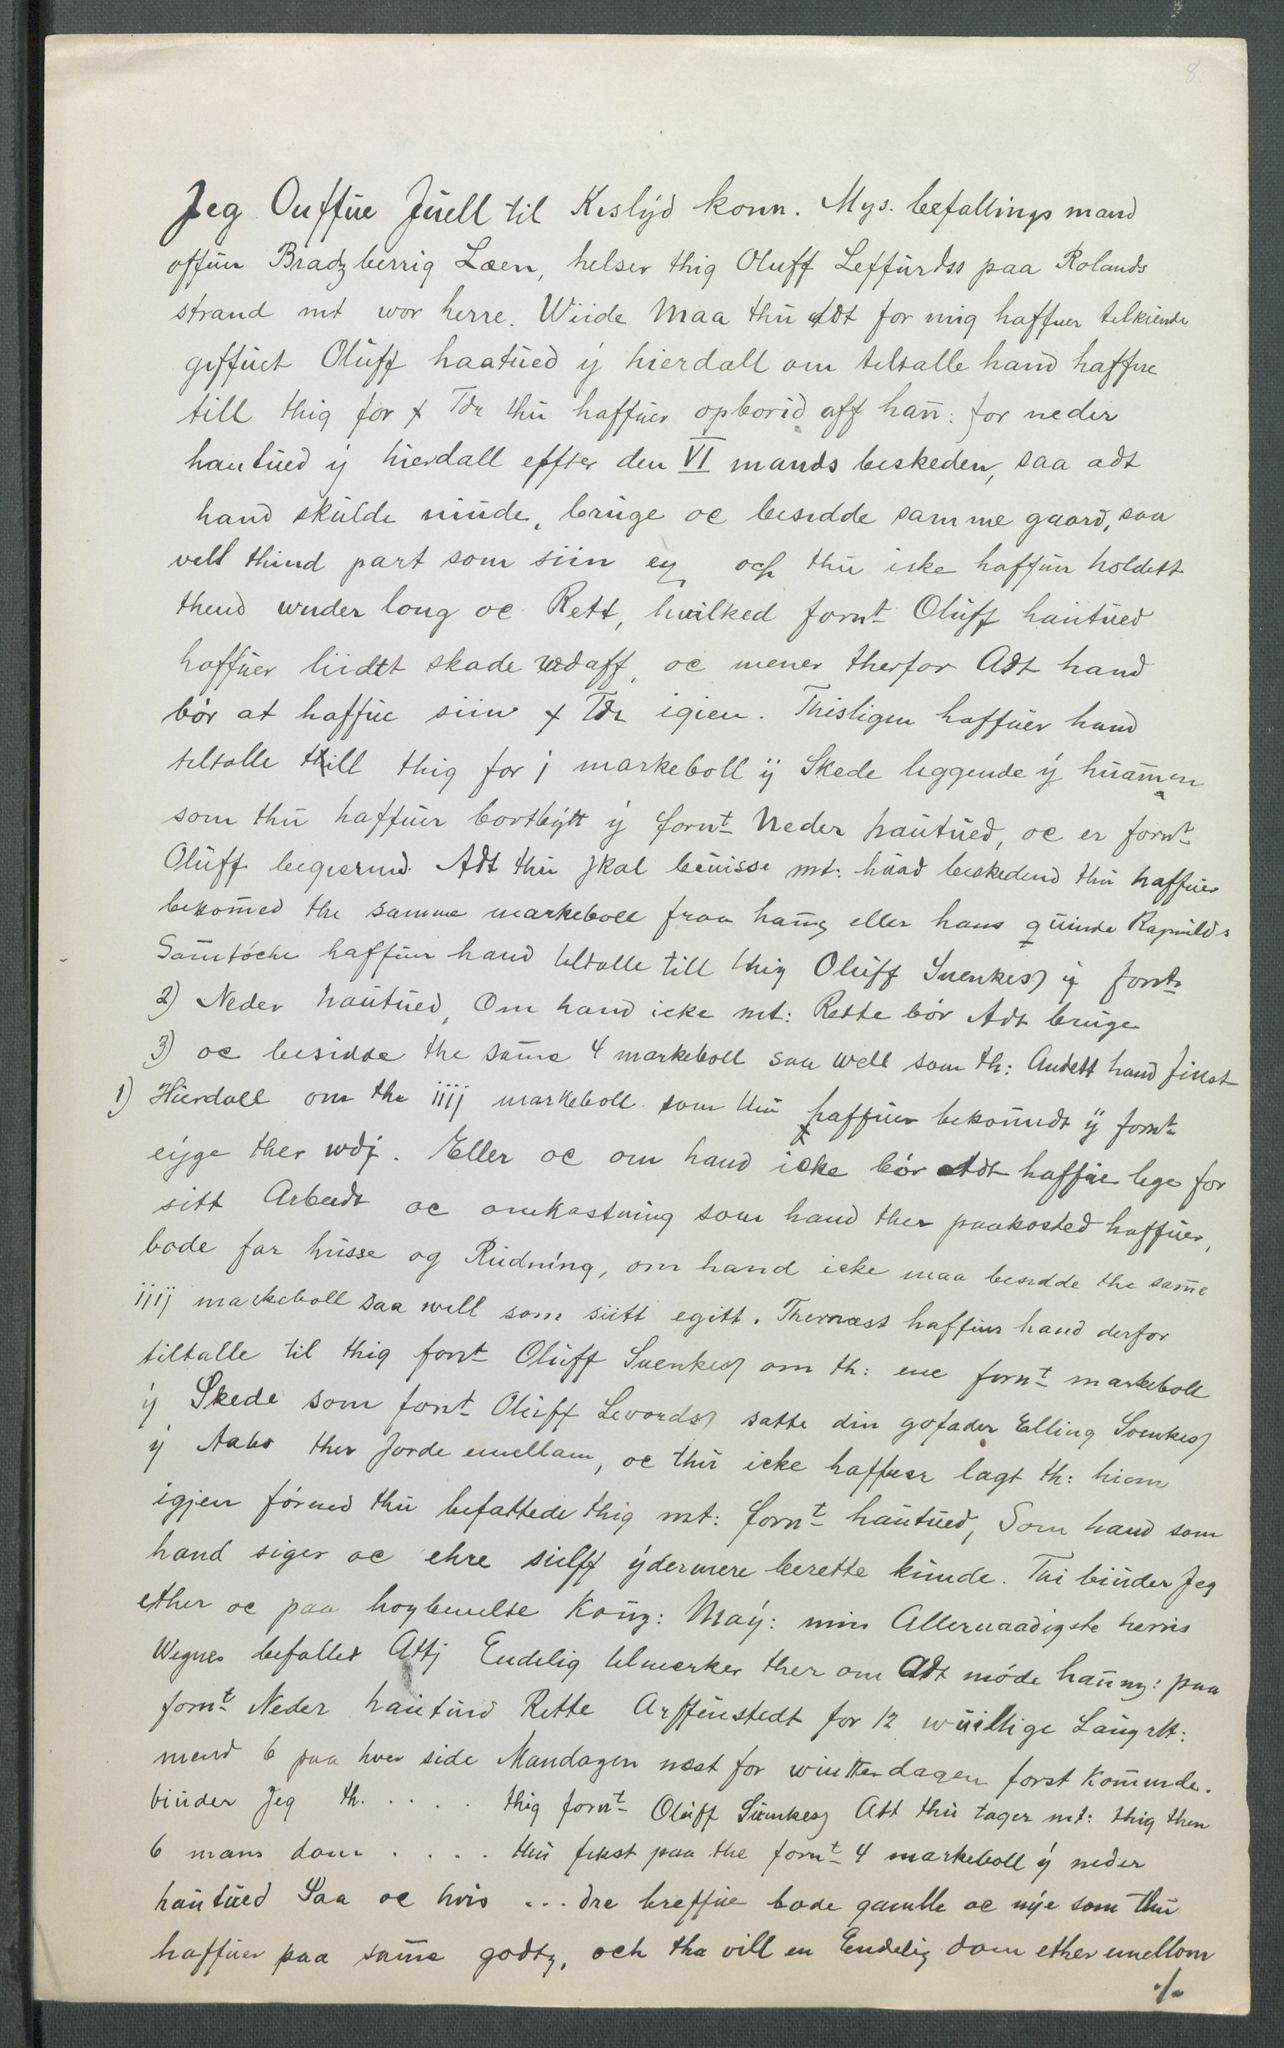 8.
Jeg Ouffue Juell til Keslyd konn. Mys. befallings mand
offuer Bradzberrig Læen, helser thig Oluff Leffurdss paa Rolands
strand mt wor herre. Wiide Maa thu Adt for mig haffuer telkiende
giffuet Oluff haatued ÿ hierdall om teltalle hand haffue
till thig for x Tdr thu haffuer opborid aff han: for neder
hautued ÿ hierdall effter den VI mands beskeden, saa adt
hand skulde niude, bruge oc besidde samme gaard, saa
vell thind part som siin eÿ och thu icke haffuer holdett
thend wnder long oc Rett, huilked fornt Oluff hautued
haffuer liidtt skade udaff, oc mener therfor Adt hand
bör at haffue siin x Tdr igien. Thisligen haffuer hand
teltalle till thig for j markeboll ÿ Skede leggende ÿ huamen
som thu haffuer bortbytt ÿ fornt Neder hautued, oc er fornt
Oluff begierind Adt thu skal beuisse mt: huad beskedend thu haffuer
bekomed the samme markeboll fraa hang eller hans quinde Ragnilds
Samtöche haffuer hand teltalle till thig Oluff Suenkess ÿ fornt
2) Neder hautued, Om hand icke mt: Rette bör Adt bruge
3) oc besidde the same 4 markeboll saa well som th: Andett hand fikst
1) Hierdall om the iiij markeboll som thu haffuer bekomidt ÿ fornt
eÿge ther wdj. Eller oc om hand icke bör Adt haffue lege for
sitt Arbeidt oc omkastning som hand ther paakosted haffuer,
bode for husse og Rudning, om hand icke maa besidde the same
iiij markeboll saa well som siitt egitt. Thernæst haffuer hand derfor
tiltalle til thig fornt Oluff Suenkess om th: ene fornt markeboll
ÿ Skede som fornt Oluff Levordss satte din gofader Elling Suenkess
ÿ Aabo ther Jorde emellam, oc thu icke haffuer lagt th: hiem
igjen förned thu befattede thig mt: fornt hautued, Som hand som
hand siger oc ehre sielff ÿdermere berette kunde. Thi biuder Jeg
ether oc paa hoybemelte Kong: Maÿ: min Allernaadigste herris
Wegnes befaller Attj Endelig telmerker ther om Adt möde hanng: paa
fornt Neder hautued Rette Arffuestedt for 12 wuillige Laugrtt:
mend 6 paa hver side Mandagen næst for winterdagen forst komende.
biuder Jeg th. . . . . thig fornt Oluff Suenkess Att thu tager mt: thig then
6 mans dom . . . . thu fikst paa the fornt 4 markeboll ÿ neder
hautued Saa oc hvis ... dre breffue bode gamble oc nÿe som thu
haffuer paa same godtz, och tha vill en Endelig dom ether emellom
./.